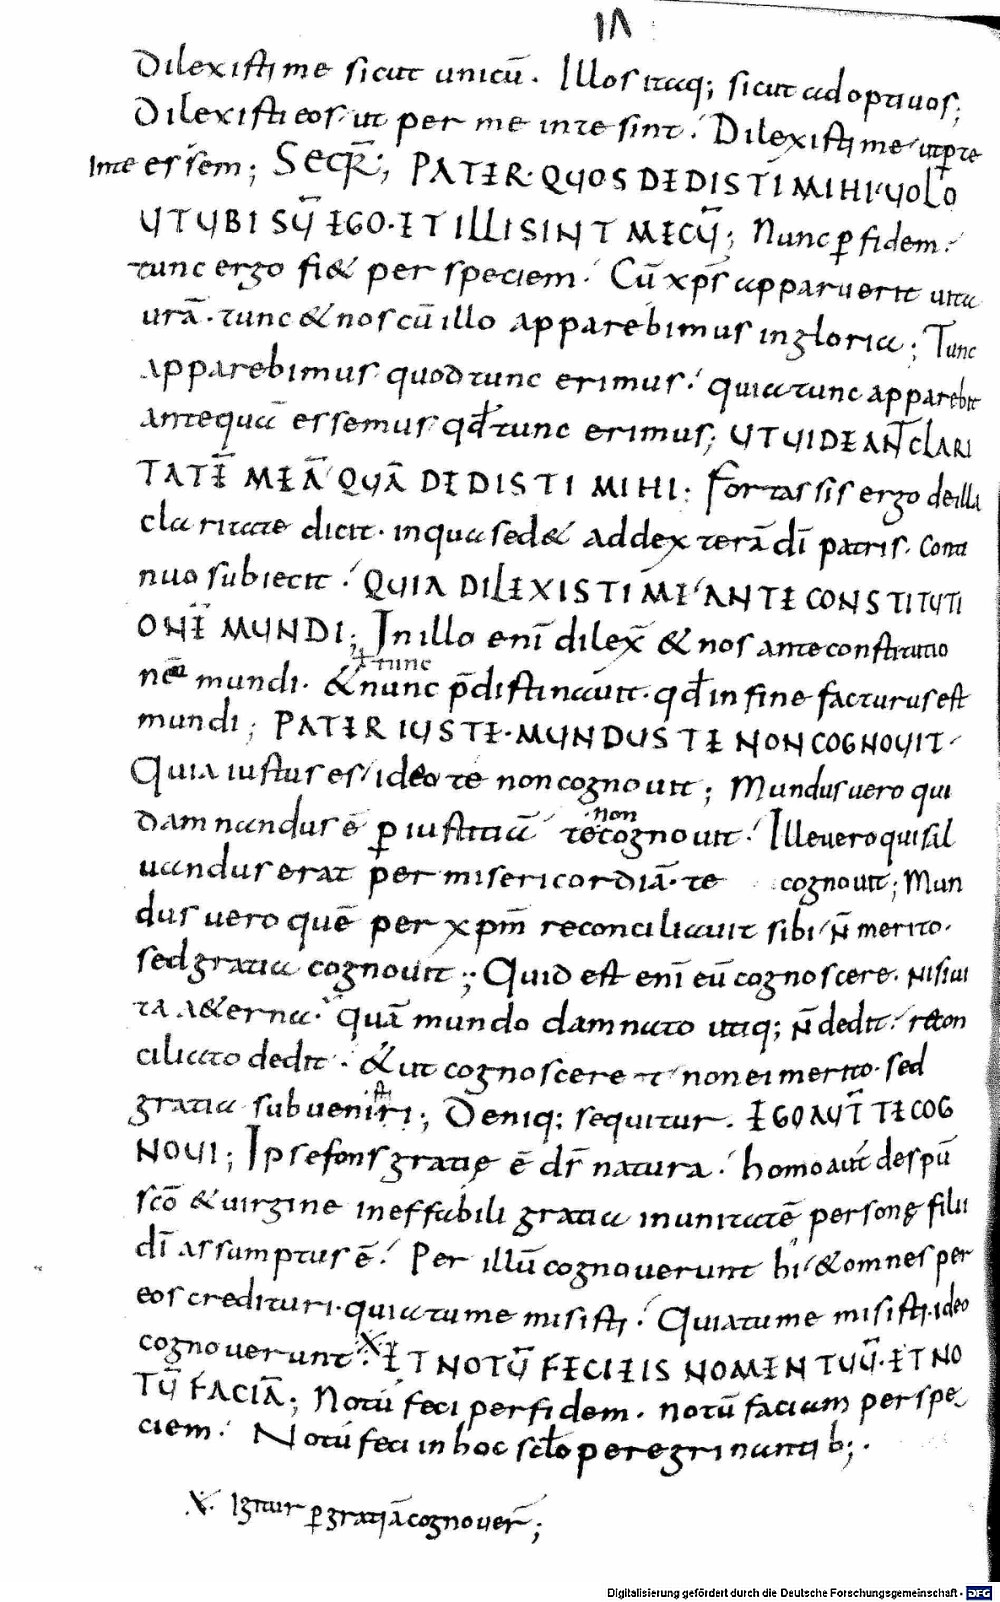 dilexisti me sicut unicū. Illos itaq; sicut adoptiuos;
Dilexisti eos ut per me in te sint. Dilexisti me ut p te
in te essem; SeqR; PATER QUOS DEDISTI MIHI UOLO
UT UBI SŪ EGO ET ILLI SINT MECŪ; Nunc p fidem.
tunc ergo fi& per speciem. Cū xp̄s apparuerit uita
urā. tunc & nos cū illo apparebimus in gloria; Tunc
apparebimus quod tunc erimus. quia tunc apparebit
antequā essemus qd tunc erimus; UT UIDEANT CLARI
TATĒ MEĀ QUĀ DEDISTI MIHI: Fortassis ergo de illa
claritate dicit. in qua sed& ad dexterā dī patris. Conti
nuo subiecit. QUIA DILEXISTI ME ANTE CONSTITUTI
ONĒ MUNDI; In illo enī dilex̄ & nos ante constitutio
nē mundi. & nunc p̄distinauit. qd in fine facturus est
ł tunc
mundi; PATER IUSTE. MUNDUS TE NON COGNOUIT.
Quia iustus es ideo te non cognouit; Mundus uero qui
damnandus ē p iustitiā te non cognouit. Ille uero qui sal
uandus erat per misericordiā. te cognouit; Mun
dus uero quē per xpm̄ reconciliauit sibi n̄ merito.
sed gratia cognouit; Quid est enī eū cognoscere. nisi ui
ta a&erna. quā mundo damnato utiq; n̄ dedit. recon
ciliato dedit. & ut cognoscere t non ei merito. sed
gratia subueniri; Deniq; sequitur. EGO AUT̄ TE COG
sti
NOUI; Ipse fons gratię ē dr̄ natura. homo aut̄ de spū
scō & uirgine ineffabili gratia in unitatē personę filii
dī assumptus ē. Per illū cognouerunt hi & omnes per
eos credituri. quia tu me misisti. Quia tu me misisti. ideo
cognouerunt. X ET NOTŪ FECI EIS NOMEN TUŪ. ET NO
TŪ FACIĀ; Notū feci per fidem. notū faciam per spe
ciem. Notū feci in hoc sclo peregrinantib;.
X. Igitur p gratiā cognouer̄;
Digitalisierung gefördert durch die Deutsche Forschungsgemeinschaft - DFG